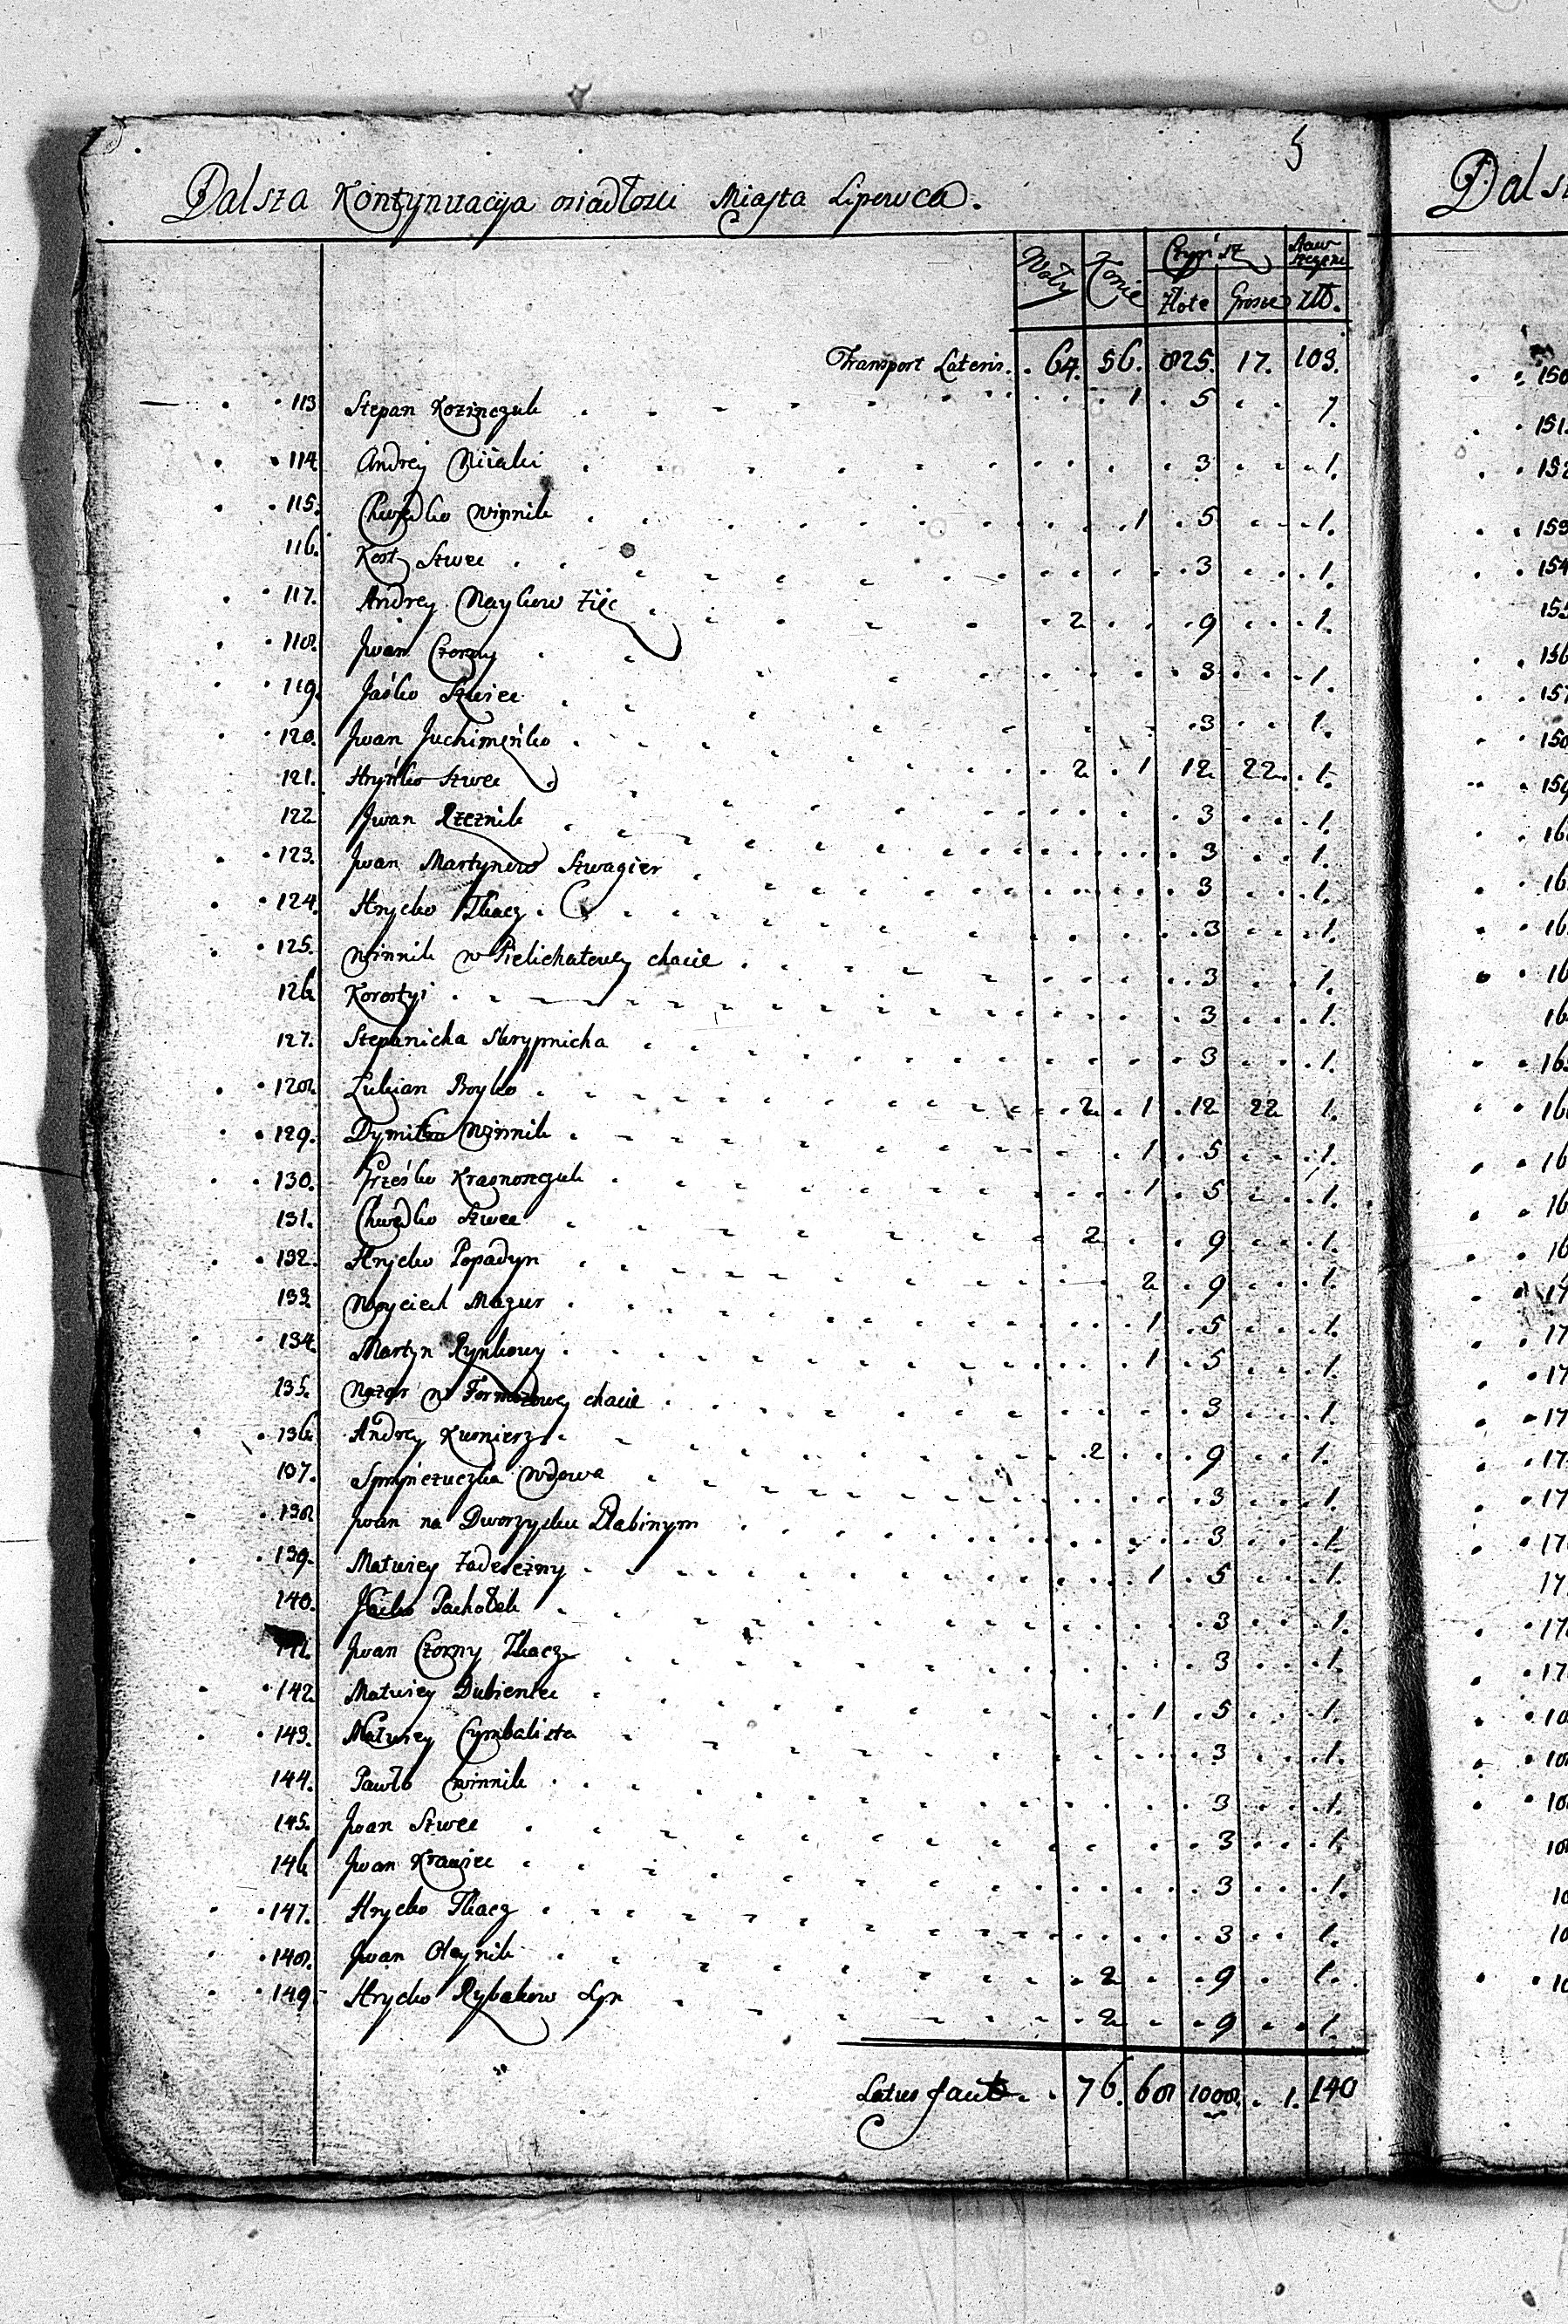 5
Dalsza Kontynuacyja osiadłosci Miasta Lipowca.
Woły Konie Czynsz
Złote Grosze Złt.
Transport Lateris. 64. 56. 825. 17. 103.
113 Stepan Kozinczuk 1 5 1.
114 Andrey 3 1.
115. Chwedko Winnik 1 5 1.
116. Kost Szwec 3 1.
117. Andrey Naykow Zięc 2 9 1.
118. Jwan Czorny 3 1.
119. Jaśko Szwiec 3 1.
120. Jwan Juchimeńko 2 1 12 22 1.
121. Hryńko Szwec 3 1.
122 Jwan Rzeznik 3 1.
123. Jwan Martynow Szwagier 3 1.
124. Hrycko Tkacz 3 1.
125. Winnik w Pielichatowey chacie 3 1.
126 Korostyi 3 1.
127. Stepanicha Skrypnicha 3 1.
128. Łukian Boyko 2 1 12 22 1.
129. Dymitro Winnik 1 5 1.
130. Hrześko Krasnoszczuk 1 5 1.
131. Chwedko Szwec 2 9 1.
132. Hrycko Popadyn 2 9 1.
133. Woyciech Mazur 1 5 1.
134. Martyn Rynkowy 1 5 1.
135. Nazar w Formozowey chacie 3 1.
136 Andrey Kusnierz 2 9 1.
137. Wdowa 3 1.
138 Jwan na Dworzysku Dłabinym 3 1.
139. Matwiey Zadereżny 1 5 1.
140. Jacko Pachołek 3 1.
141. Jwan Czorny Tkacz 3 1.
142 Matwiey Dubieniec 1 5 1.
143. Matwiey Cymbalista 3 1.
144. Pawło Winnik 3 1.
145. Jwan Szwec 3 1.
146 Jwan Krawiec 3 1.
147. Hrycko Tkacz 3 1.
148. Jwan Oleynik 2 9 1.
149. Hrycko Rybakow Syn 2 9 1.
Latus facit 76. 68 1008. 1. 140
Dals
150
151.
152
153
154